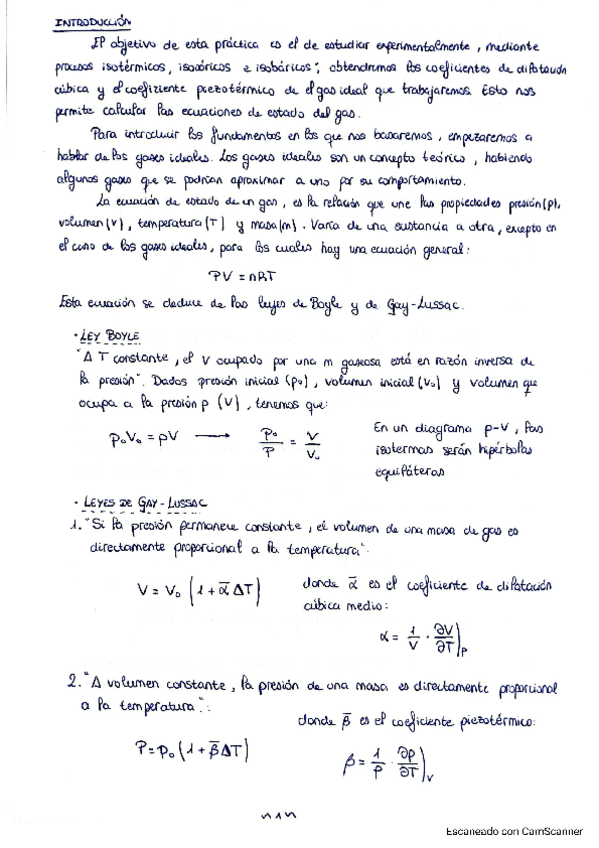 INTRODUCCIÓN
El objetivo de esta práctica es el de estudiar experimentalmente, mediante
procesos isotérmicos, isocóricos e isobáricos; obtendremos los coeficientes de dilatación
cúbica y el coefiziente piezotérmico de el gas ideal que trabajaremos. Esto nos
permite calcular las ecuaciones de estado del gas.
Para introducir los fundamentos en los que nos basaremos, empezaremos a
hablar de los gases ideales. Los gases ideales son un concepto teórico, habiendo
algunos gases que se podrían aproximar a uno por su comportamiento.
La ecuación de estado de un gas, es la relación que une las propiedades presión (p),
volumen (v), temperatura (T) y masa (m). Varía de una sustancia a otra, excepto en
el caso de los gases ideales, para los cuales hay una ecuación general:
PV = nRT
Esta ecuación se deduce de las leyes de Boyle y de Gay-Lussac.
· LEY BOYLE
"A T constante, el V ocupado por una m gaseosa está en razón inversa de
la presión". Dados presión inicial (p₀), volumen inicial (V₀) y volumen que
ocupa a la presión p (V), tenemos que:
p₀V₀ = pV ⟶ p₀/p = V/V₀
En un diagrama p-V, las
isotermas serán hipérbolas
equiláteras
· LEYES DE GAY-LUSSAC
1. "Si la presión permanece constante, el volumen de una masa de gas es
directamente proporcional a la temperatura":
V = V₀ (1 + ᾱ ΔT)
donde ᾱ es el coeficiente de dilatación
cúbica medio:
α = 1/V · ∂V/∂T)P
2. "A volumen constante, la presión de una masa es directamente proporcional
a la temperatura":
donde β̄ es el coeficiente piezotérmico:
P = p₀ (1 + β̄ ΔT)
β = 1/P · ∂p/∂T)V
~1~
Escaneado con CamScanner